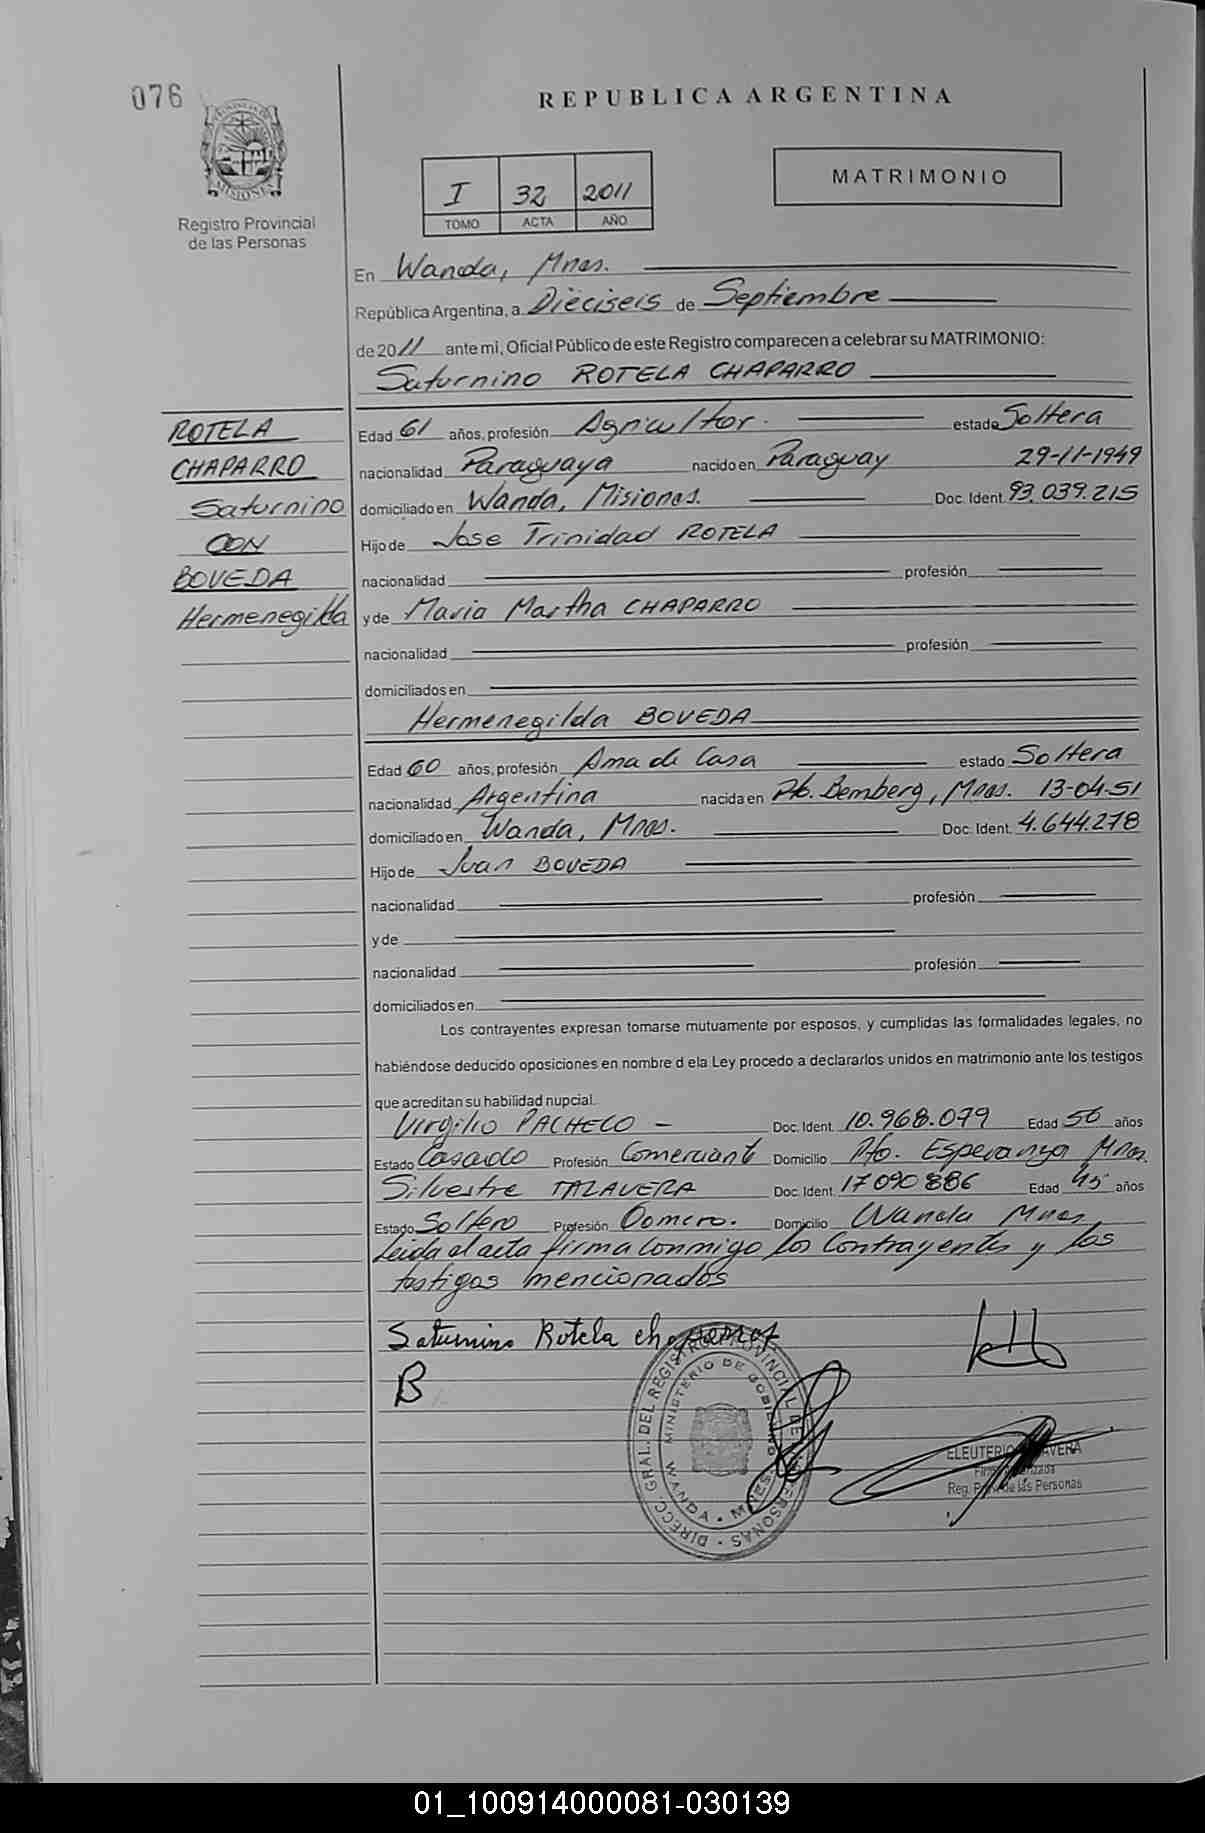 076
REPUBLICA ARGENTINA
MATRIMONIO
I 32 2011
TOMO ACTA AÑO
Registro Provincial
de las Personas
En Wanda, Mnes.
República Argentina, a Dieciseis de Septiembre
de 2011 ante mi, Oficial Público de este Registro comparecen a celebrar su MATRIMONIO:
Saturnino ROTELA CHAPARRO
ROTELA
CHAPARRO
Saturnino
CON
BOVEDA
Hermenegilda
Edad 61 años, profesión Agricultor. estado Soltera
nacionalidad Paraguaya nacido en Paraguay 29-11-1949
domiciliado en Wanda, Misiones. Doc. Ident. 93.039.215
Hijo de Jose Trinidad ROTELA
nacionalidad profesión
y de Maria Martha CHAPARRO
nacionalidad profesión
domiciliados en
Hermenegilda BOVEDA
Edad 60 años, profesión Ama de Casa estado Soltera
nacionalidad Argentina nacida en Pto. Bemberg, Mnes. 13-04-51
domiciliado en Wanda, Mnes. Doc. Ident. 4.644.278
Hijo de Juan BOVEDA
nacionalidad profesión
y de
nacionalidad profesión
domiciliados en
Los contrayentes expresan tomarse mutuamente por esposos, y cumplidas las formalidades legales, no
habiéndose deducido oposiciones en nombre d ela Ley procedo a declararlos unidos en matrimonio ante los testigos
que acreditan su habilidad nupcial.
Virgilio PACHECO - Doc. Ident. 10.968.079 Edad 56 años
Estado Casado Profesión Comerciante Domicilio Pto. Esperanza Mnes.
Silvestre TALAVERA Doc. Ident. 17090886 Edad 45 años
Estado Soltero Profesión Domicilio Wanda Mnes.
Leida el acta firma conmigo los Contrayentes y los
testigos mencionados
Saturnino Rotela chaparro
B
DIRECC. GRAL. DEL REGISTRO PROVINCIAL DE PERSONAS
MINISTERIO DE GOBIERNO
WANDA MNES.
ELEUTERIO
Reg. de las Personas
01_100914000081-030139